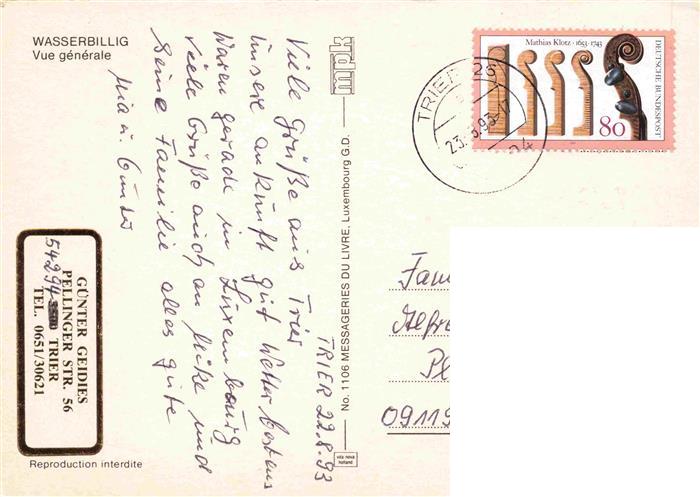 WASSERBILLIG
Vue générale
TRIER 22.8.93
Viele Grüße aus Trier
unsere Ankunft gut Wetter bestens
Waren gerade in Luxembourg
Viele Grüße auch an Heike und
Seine Familie alles gute
Mia u. Günter
GÜNTER GEIDIES
PELLINGER STR. 56
54294 TRIER
TEL. 0651/30621
Reproduction interdite
mpk
No. 1106 MESSAGERIES DU LIVRE, Luxembourg G.D.
vita nova
holland
TRIER 26
23.8.93-17
Mathias Klotz · 1653-1743
DEUTSCHE BUNDESPOST
80
Fam
Alfre
Pl
09119